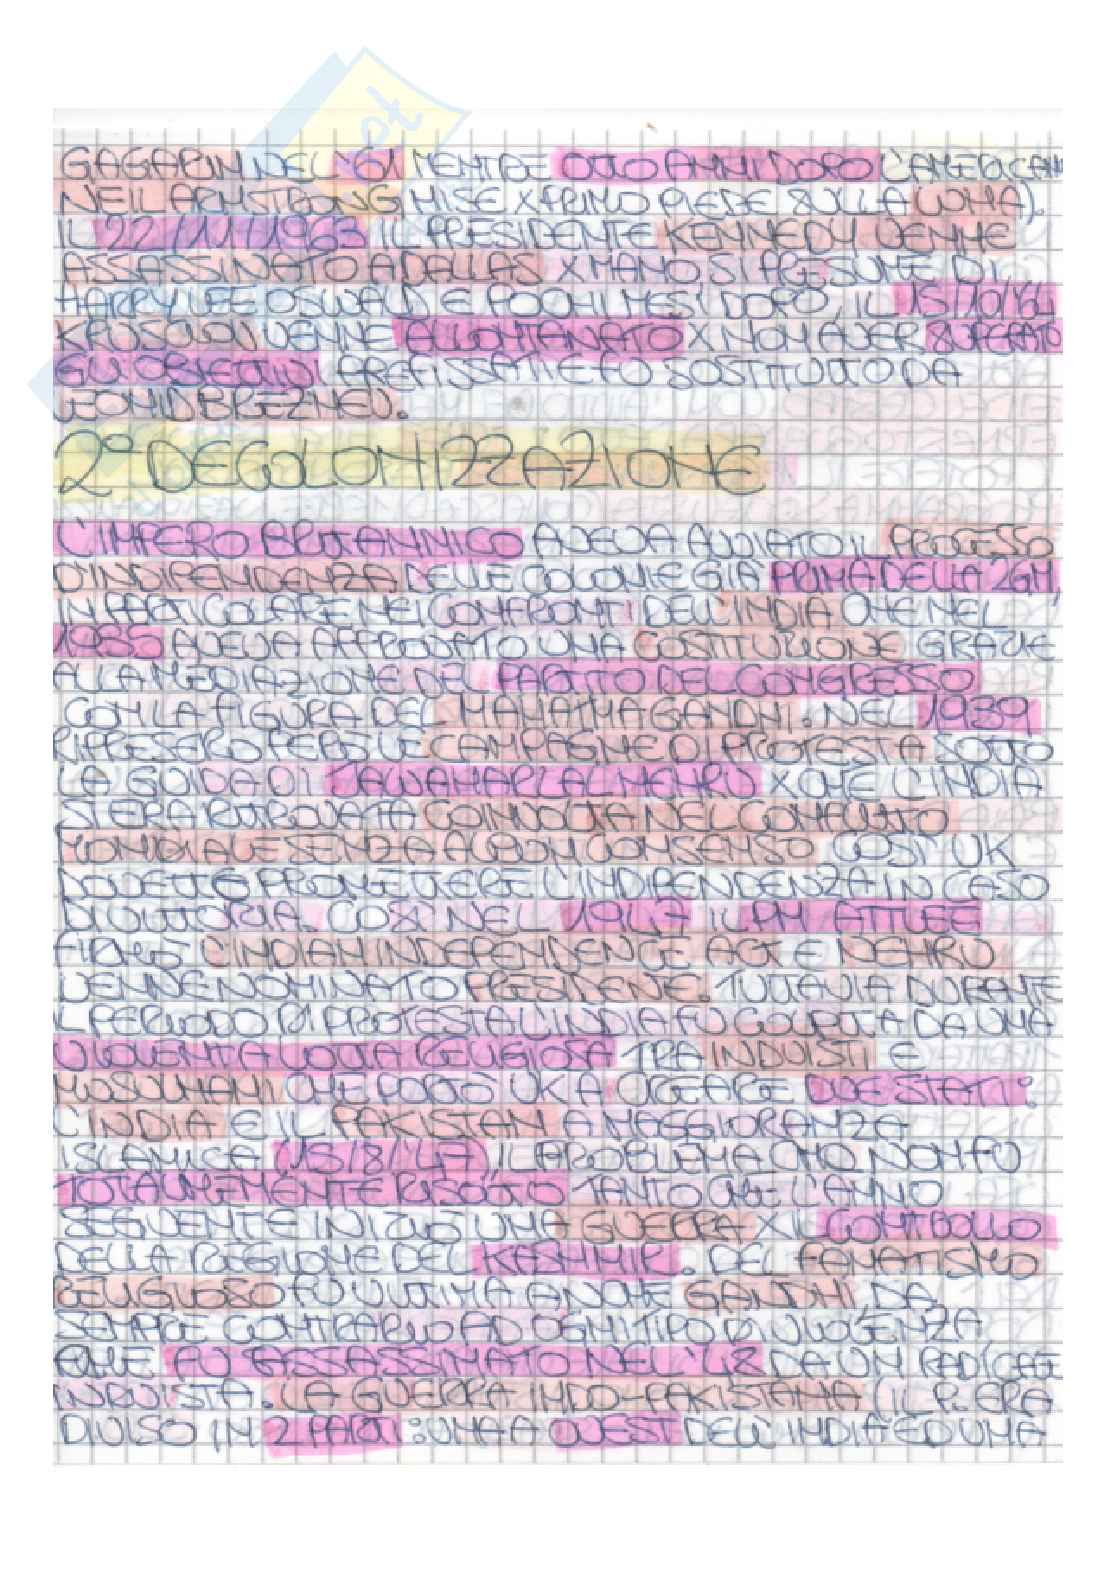 GAGARIN NEL '61 MENTRE OTTO ANNI DOPO L'AMERICAN
NEIL ARMSTRONG MISE X PRIMO PIEDE SULLA LUNA).
IL 22/11/1963 IL PRESIDENTE KENNEDY VENNE
ASSASSINATO A DALLAS X MANO SI PRESUME DI
HARRY LEE OSWALD E POCHI MESI DOPO IL 15/10/64
KRUSCIOV VENNE ALLONTANATO X NON AVER SUPERATO
GLI OBIETTIVI PREFISSATI E FU SOSTITUITO DA
LEONID BREZNEV.
2° DECOLONIZZAZIONE
L'IMPERO BRITANNICO AVEVA AVVIATO IL PROCESSO
D'INDIPENDENZA DELLE COLONIE GIÀ PRIMA DELLA 2GM
IN PARTICOLARE NEI CONFRONTI DELL'INDIA CHE NEL
1935 AVEVA APPROVATO UNA COSTITUZIONE GRAZIE
ALLA MEDIAZIONE DEL PARTITO DEL CONGRESSO
CON LA FIGURA DEL MAHATMA GANDHI. NEL 1939
RIPRESERO PERÒ LE CAMPAGNE DI PROTESTA SOTTO
LA GUIDA DI JAWAHARLAL NEHRU X CHE L'INDIA
SI ERA RITROVATA COINVOLTA NEL CONFLITTO
MONDIALE SENZA ALCUN CONSENSO COSÌ UK
DOVETTE PROMETTERE L'INDIPENDENZA IN CASO
DI VITTORIA. COSÌ NEL 1947 IL PM ATTLEE
FIRMÒ L'INDIAN INDEPENDENCE ACT E NEHRU
VENNE NOMINATO PRESIDENE. TUTTAVIA DURANTE
IL PERIODO DI PROTESTA L'INDIA FU COLPITA DA UNA
VIOLENTA LOTTA RELIGIOSA TRA INDUISTI E
MUSULMANI CHE PORTÒ UK A CREARE DUE STATI:
L'INDIA E IL PAKISTAN A MAGGIORANZA
ISLAMICA (15/8/'47) IL PROBLEMA NON FU
TOTALMENTE RISOLTO TANTO CHE L'ANNO
SEGUENTE INIZIÒ UNA GUERRA X IL CONTROLLO
DELLA REGIONE DEL KASHMIR. DEL FANATISMO
RELIGIOSO FU VITTIMA ANCHE GANDHI DA
SEMPRE CONTRARIO AD OGNI TIPO DI VIOLENZA
CHE FU ASSASSINATO NEL '48 DA UN RADICALE
INDUISTA. LA GUERRA INDO-PAKISTANA (IL P. ERA
DIVISO IN 2 PARTI: UNA A OVEST DELL'INDIA ED UNA